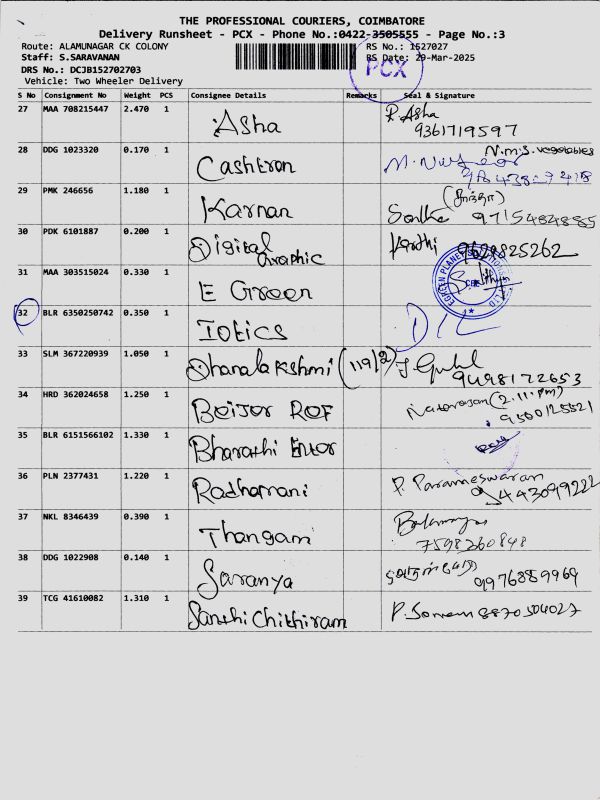 THE PROFESSIONAL COURIERS, COIMBATORE
Delivery Runsheet - PCX - Phone No.:0422-3505555 - Page No.:3
Route: ALAMUNAGAR CK COLONY
RS No.: 1527027
Staff: S.SARAVANAN
RS Date: 29-Mar-2025
PCX
DRS No.: DCJB152702703
Vehicle: Two Wheeler Delivery
S No Consignment No Weight PCS Consignee Details Remarks Seal & Signature
27 MAA 708215447 2.470 1 Asha P. Asha
9361719597
28 DDG 1023320 0.170 1 Cashtron N.m.s. vegetables
29 PMK 246656 1.180 1 Karnan
9715484885
30 PDK 6101887 0.200 1 Digital Graphic
9629825262
31 MAA 303515024 0.330 1 E Green
32 BLR 6350250742 0.350 1 Iotics
33 SLM 367220939 1.050 1 Dhanalakshmi (119/2)
9498172653
34 HRD 362024658 1.250 1 Beijer ROF Natarasan (2.11.pm)
35 BLR 6151566102 1.330 1 Bharathi Enter
36 PLN 2377431 1.220 1 Radhamani P. Parameswaran
9443099222
37 NKL 8346439 0.390 1 Thangam
7598260848
38 DDG 1022908 0.140 1 Saranya
9976889969
39 TCG 41610082 1.310 1 Santhi Chithiram 8870504027